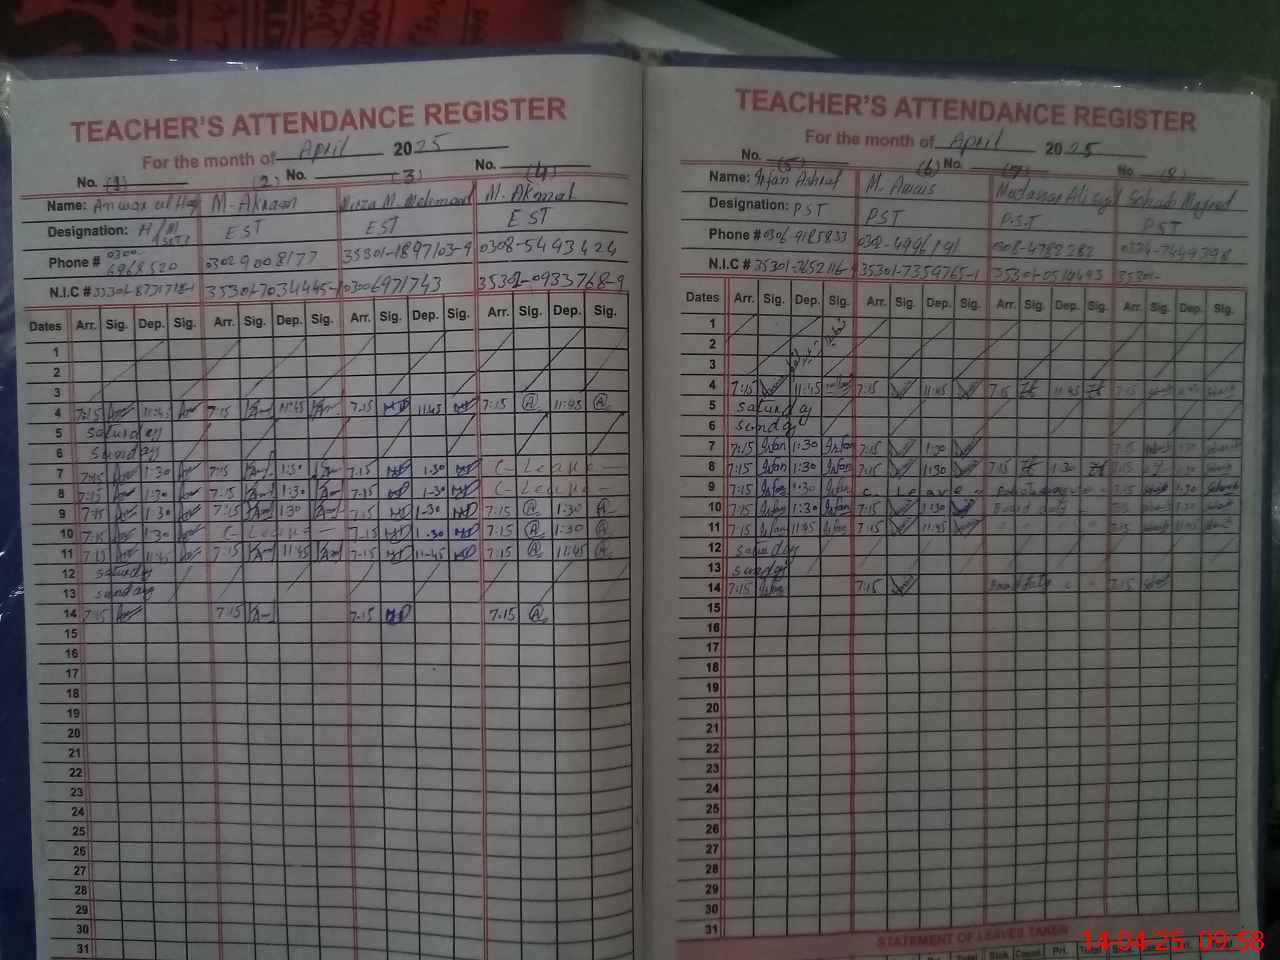 TEACHER'S ATTENDANCE REGISTER
For the month of April 2025
No. (1) (2) No. (3) No. (4)
Name: Anwar ul Haq M. Akram Mirza M. Mehmood M. Akmal
Designation: H/M EST EST EST
Phone # 0300-6968520 03029008177 35301-1897103-9 0308-5493424
N.I.C # 35301-7034445-1 03006971743 35301-0933768-9
Dates Arr. Sig. Dep. Sig. Arr. Sig. Dep. Sig. Arr. Sig. Dep. Sig. Arr. Sig. Dep. Sig.
1
2
3
4 7:15 11:45 7:15 11:45 7.15 11.45 7:15 A 11:45 A
5 Saturday
6 Sunday
7 7:15 1:30 7:15 1:30 7.15 1.30 C-Leave
8 7:15 1:30 7:15 1:30 7.15 1-30 C-Leave
9 7:15 1:30 7:15 1:30 7.15 1-30 7:15 A 1:30 A
10 7:15 1:30 C-Leave 7.15 1.30 7:15 A 1:30 A
11 7:15 11:45 7:15 11:45 7.15 11-45 7:15 A 11:45 A
12 Saturday
13 Sunday
14 7:15 7:15 7.15 7.15 A
15
16
17
18
19
20
21
22
23
24
25
26
27
28
29
30
31
TEACHER'S ATTENDANCE REGISTER
For the month of April 2025
No. (5) (6) No. (7) No. (8)
Name: Irfan Ashraf M. Awais Sohaib Majeed
Designation: PST PST P.S.T PST
Phone # 0306-9185833 0302-4996191 0308-4782282 0334-7449398
N.I.C # 35301-7359765-1 35301-
Dates Arr. Sig. Dep. Sig. Arr. Sig. Dep. Sig. Arr. Sig. Dep. Sig. Arr. Sig. Dep. Sig.
1
2
3
4 7:15 11:45 7:15 11:45 7:15 11:45 7:15
5 Saturday
6 Sunday
7 7:15 Irfan 1:30 Irfan 7:15 1:30 7:15 1:30
8 7:15 Irfan 1:30 Irfan 7:15 1:30 7:15 1:30 7:15 1:30
9 7:15 Irfan 1:30 Irfan C. Leave 7:15 1:30
10 7:15 Irfan 1:30 Irfan 7:15 1:30 Board duty 7:15 1:30
11 7:15 Irfan 11:45 Irfan 7:15 11:45 7:15 11:45
12 Saturday
13 Sunday
14 7:15 Irfan 7:15 Board duty 7:15
15
16
17
18
19
20
21
22
23
24
25
26
27
28
29
30
31
STATEMENT OF LEAVES TAKEN
14-04-25 09:58